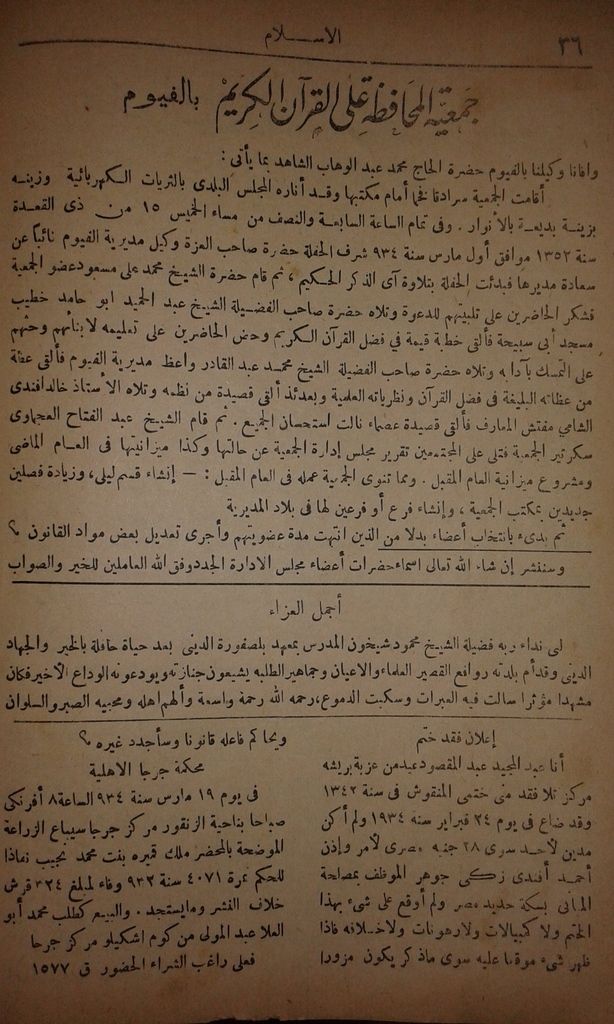 ٣٦
الاســلام
جمعية المحافظة على القرآن الكريم بالفيوم
وافانا وكيلنا بالفيوم حضرة الحاج محمد عبد الوهاب الشاهد بما يأتى :
أقامت الجمعية سرادقا فخما أمام مكتبها وقد أناره المجلس البلدى بالثريات الكهربائية وزينه
بزينة بديعة بالأنوار . وفى تمام الساعة السابعة والنصف من مساء الخميس ١٥ من ذى القعدة
١٣٥٢ موافق أول مارس سنة ٩٣٤ شرف الحفلة حضرة صاحب العزة وكيل مديرية الفيوم نائباً عن
سعادة مديرها فبدئت الحفلة بتلاوة آى الذكر الحكيم ، ثم قام حضرة الشيخ محمد على مسعود عضو الجمعية
فشكر الحاضرين على تلبيتهم للدعوة وتلاه حضرة صاحب الفضيلة الشيخ عبد الحميد ابو حامد خطيب
مسجد أبى سبيحة فألقى خطبة قيمة فى فضل القرآن الكريم وحض الحاضرين على تعليمه لابنائهم وحثهم
على التمسك بآدابه وتلاه حضرة صاحب الفضيلة الشيخ محمد عبد القادر واعظ مديرية الفيوم فألقى عظة
من عظاته البليغة فى فضل القرآن ونظرياته العلمية وبعدئذ ألقى قصيدة من نظمه وتلاه الأستاذ خالد افندى
الشامي مفتش المعارف فألقى قصيدة عصماء نالت استحسان الجميع . ثم قام الشيخ عبد الفتاح العجماوى
سكرتير الجمعية فتلى على المجتمعين تقرير مجلس إدارة الجمعية عن حالتها وكذا ميزانيتها فى العام الماضى
ومشروع ميزانية العام المقبل . ومما تنوى الجمعية عمله فى العام المقبل : — إنشاء قسم ليلى ، وزيادة فصلين
جديدين بمكتب الجمعية ، وإنشاء فرع أو فرعين لها فى بلاد المديرية
ثم بدىء بانتخاب أعضاء بدلا من الذين انتهت مدة عضويتهم وأجرى تعديل بعض مواد القانون ؟
وسننشر إن شاء الله تعالى اسماء حضرات أعضاء مجلس الادارة الجدد وفق الله العاملين للخير والصواب
أجمل العزاء
لبى نداء ربه فضيلة الشيخ محمود شيخون المدرس بمعهد بلصفورة الدينى بعد حياة حافلة بالخير والجهاد
الدينى وقد أم بلدته روافع القصير العلماء والاعيان وجماهير الطلبه يشيعون جنازته ويودعونه الوداع الأخير فكان
مشهدا مؤثرا سالت فيه العبرات وسكبت الدموع، رحمه الله رحمة واسعة وألهم اهله ومحبيه الصبر والسلوان
إعلان فقد ختم
أنا عبد المجيد عبد المقصود عبد من عزبة بريشه
مركز تلا فقد منى ختمى المنقوش فى سنة ١٣٤٢
وقد ضاع فى يوم ٢٤ فبراير سنة ١٩٣٤ ولم أكن
مدين لأحد سوى ٢٨ جنيه مصرى لأمر وإذن
أحمد أفندى زكى جوهر الموظف بمصلحة
المبانى بسكة حديد مصر ولم أوقع على شىء بهذا
الختم ولا كمبيالات ولا رهونات ولا خلافه فاذا
ظهر شىء موقعا عليه سوى ماذكر يكون مزورا
ويحاكم فاعله قانونا وسأجدد غيره ؟
محكمة جرجا الاهلية
فى يوم ١٩ مارس سنة ٩٣٤ الساعة ٨ أفرنكى
صباحا بناحية الزنقور مركز جرجا سيباع الزراعة
الموضحة بالمحضر ملك قيره بنت محمد نجيب نفاذا
للحكم نمرة ٤٠٧١ سنة ٩٣٣ وفاء لمبلغ ٣٢٤ قرش
خلاف النشر ومايستجد . والبيع كطلب محمد أبو
العلا عبد المولى من كوم اشكيلو مركز جرجا
فعلى راغب الشراء الحضور ق ١٥٧٧